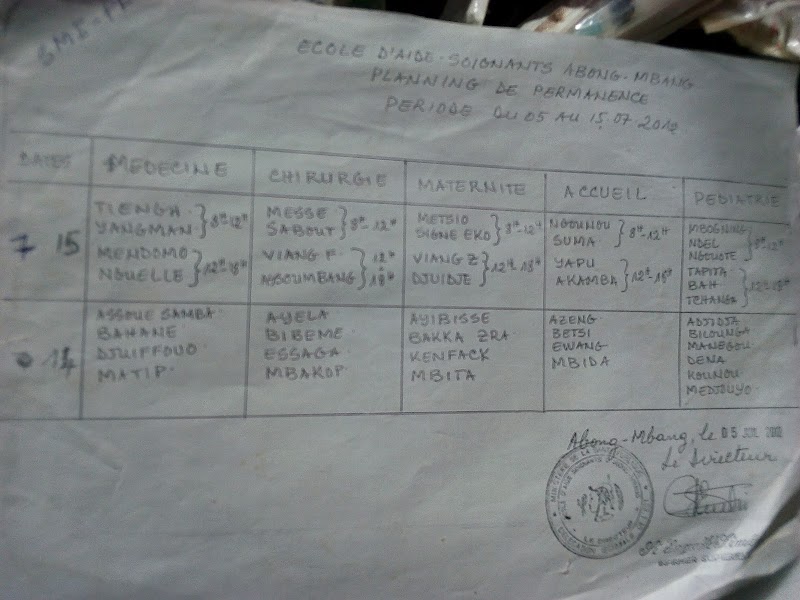 ECOLE D'AIDE-SOIGNANTS ABONG-MBANG
PLANNING DE PERMANENCE
PERIODE DU 05 AU 15.07.2012
DATES MEDECINE CHIRURGIE MATERNITE ACCUEIL PEDIATRIE
7 15
TIENGA
YANGMAN 8H-12H
MENDOMO
NGUELLE 12H-18H
MESSE
SABOUT 8H-12H
VIANG F. 12H
NGOUMBANG 18H
METSIO
SIGNE EKO 8H-12H
VIANG Z
DJUIDJE 12H-18H
NGOUNOU
SUMA 8H-12H
YAPU
AKAMBA 12H-18H
MBOGNING
NDEL
NGUOTE 8H-12H
TAPITA
BAH
TCHANGA 12H-18H
14
ASSOUE SAMBA
BAHANE
DJUIFFOUO
MATIP
AYELA
BIBEME
ESSAGA
MBAKOP
AYIBISSE
BAKKA ZRA
KENFACK
MBITA
AZENG
BETSI
EWANG
MBIDA
ADJIDJA
BILOUNGA
MANEGOU
DENA
KOUNOU
MEDJOUYO
Abong-Mbang, le 05
Le Directeur
LE DIRECTEUR